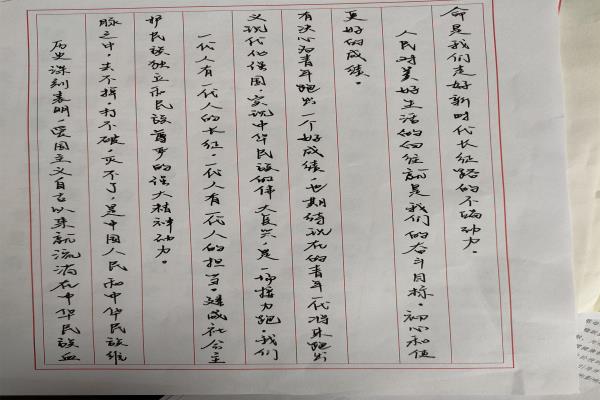 历史深刻表明，爱国主义自古以来就流淌在中华民族血
脉之中，去不掉，打不破，灭不了，是中国人民和中华民族维
护民族独立和民族尊严的强大精神动力。
一代人有一代人的长征，一代人有一代人的担当。建成社会主
义现代化强国，实现中华民族的伟大复兴，是一场接力跑，我们
有决心为青年跑出一个好成绩，也期待现在的青年一代将来跑出
更好的成绩。
人民对美好生活的向往就是我们的奋斗目标。初心和使
命是我们走好新时代长征路的不竭动力。